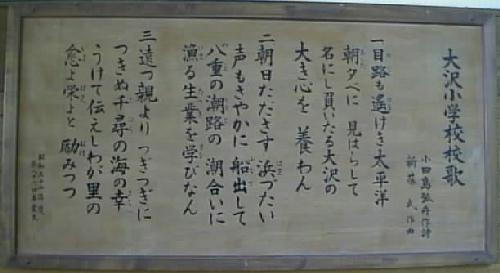 大沢小学校校歌
小田島孤舟作詩
新藤 武作曲
一 目路も遙けき太平洋
朝夕べに 見はらして
名にし負いたる大沢の
大き心を 養わん
二 朝日たださす 浜づたい
声もさやかに 船出して
八重の潮路の 潮合いに
漁る生業を学びなん
三 遠つ親より つぎつぎに
つきぬ千尋の海の幸
うけて伝えしわが里の
愈よ栄よと 励みつつ